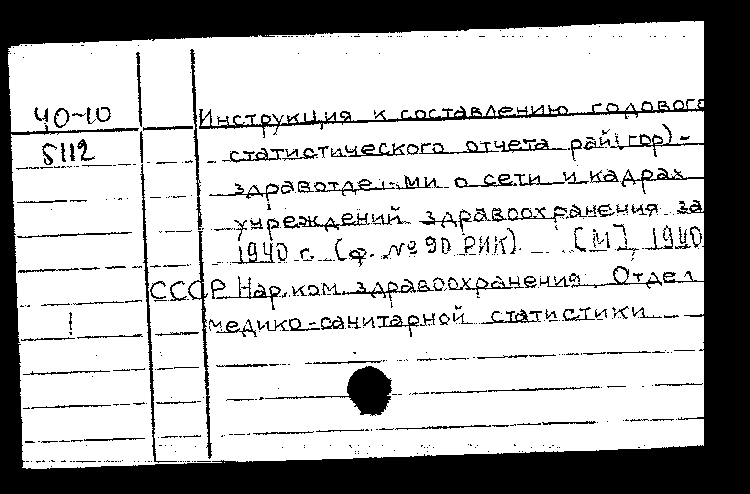 40-10 Инструкция к составлению годового
5112 статистического отчета рай(гор)-
здравотделами о сети и кадрах
учреждений здравоохранения за
1940 г. (ф. № 90 РИК). [М], 1940
СССР. Нар. ком. здравоохранения. Отдел
! медико-санитарной статистики